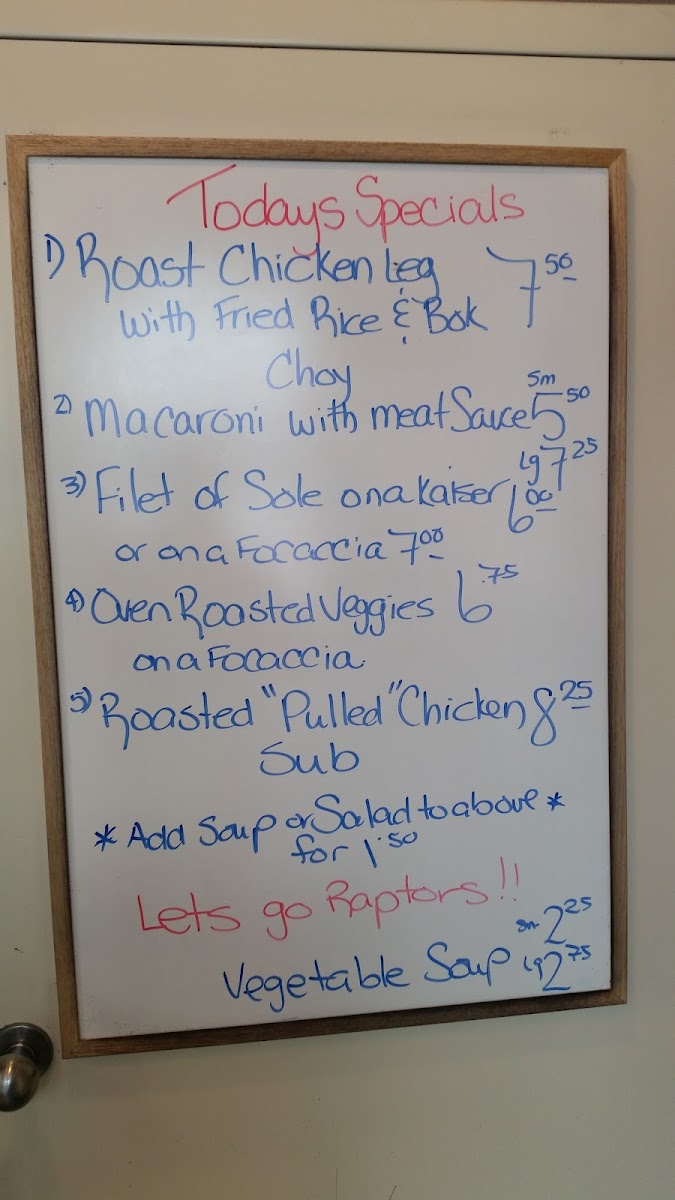 Todays Specials
1) Roast Chicken Leg 7 50
with Fried Rice & Bok
Choy
2) Macaroni with meat Sauce sm 5 50
lg 7 25
3) Filet of Sole on a Kaiser 6 00
or on a Focaccia 7 00
4) Oven Roasted Veggies 6 .75
on a Focaccia
5) Roasted "Pulled" Chicken 8 25
Sub
* Add Soup or Salad to above *
for 1.50
Lets go Raptors!!
sm 2 25
Vegetable Soup lg 2 75